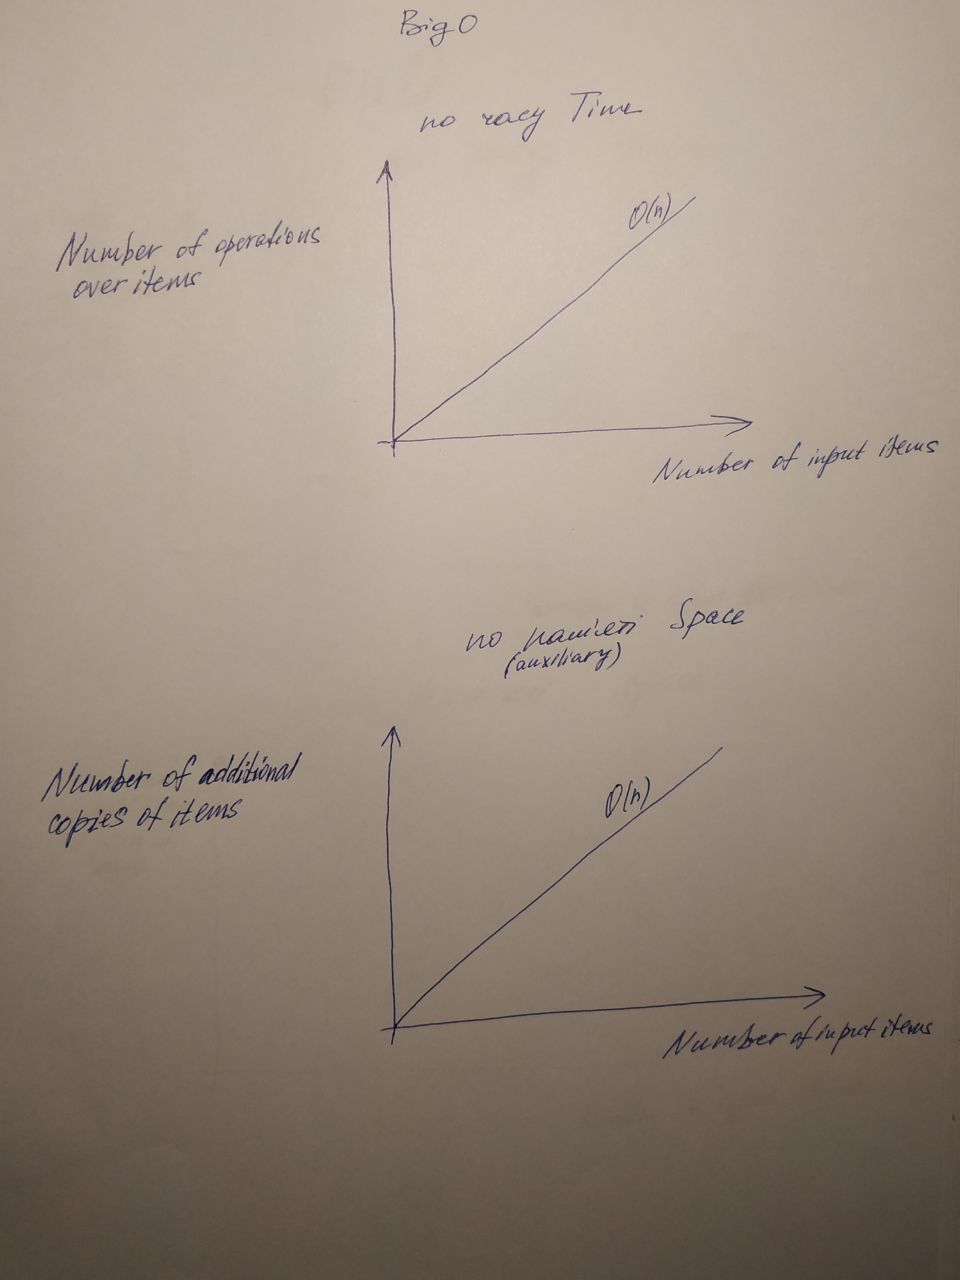 Big O
по часу Time
O(n)
Number of operations
over items
Number of input items
по памʼяті Space
(auxiliary)
Number of additional
copies of items
O(n)
Number of input items